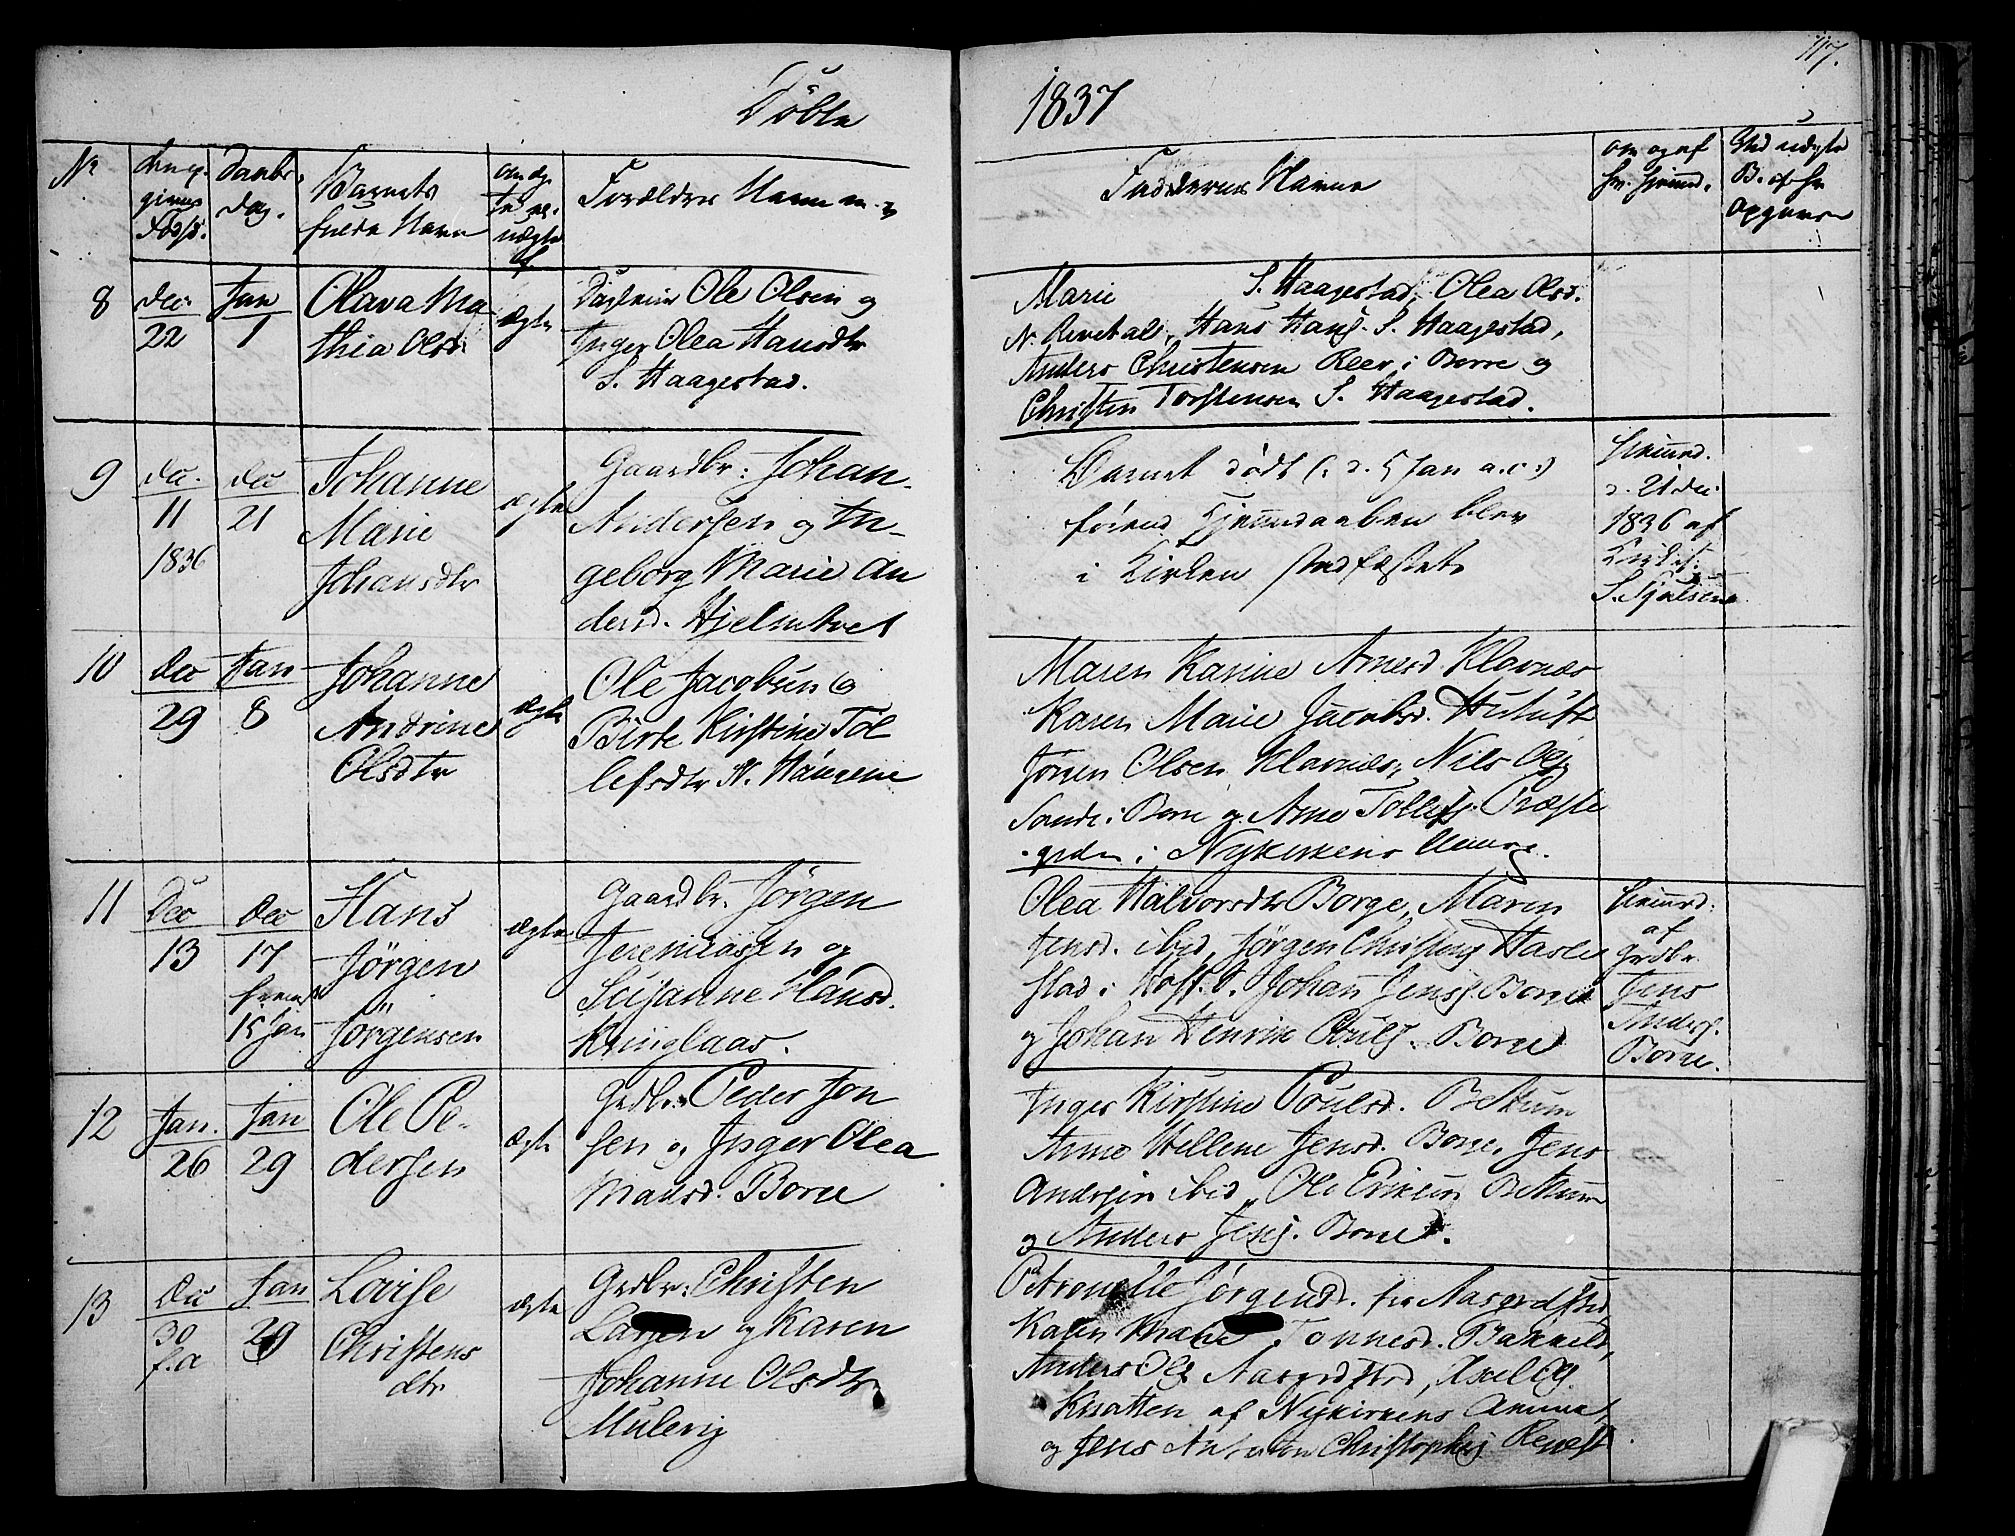 Döbte
1837
117.
No
Döbte
Daabs-
dag.
Barnets
fulde Navn
Forældres Navn
Faddernes Navn
om og af
8
Dec
22
Jan
1
Olava Ma
thia Olsd
Ægte
Ole Olsen og
Inger Olea Hansdtr
S. Haagestad.
Marie S. Haagestad, Olea Olsd.
N. Revetal, Hans Hansj. S. Haagestad,
Anders Christensen Reer i Borre og
Christen Torstensen S. Haagestad.
9
Dec.
11
1836
Dec
21
Johanne
Marie
Johansdtr
ægte
Gaardbr: Johan
Andersen og In-
geborg Marie An
dersd. Hjelmtvet
Barnet dödt (: d. 5 Jan a.c:)
förend Hjemdaaben blev
i Kirken stadfæstet
Hiemd.
d. 21 Dec
1836 af
10
Dec
29
Jan
8
Johanne
Andrine
Olsdtr
Ægte
Ole Jacobsen og
Birte Kirstine Tol
lefsdtr N. Haugene
Maren Karine Arnesd Klavnæs
Karen Marie Jacobsd.
Jörgen Olsen Klavnæs, Nils Olsj
Sande i Borre og Arne Tollefsj. Præste
grden i Nykirkens
11
Dec
13
Dec
17
15 Jan
Hans
Jörgen
Jörgensen
Ægte
Gaardbr. Jörgen
Jeremiasen og
Susanne Hansd.
Kringlaas.
Olea Halvorsdtr Borge, Maren
Jensd. ibid, Jörgen Christensj Hasle
stad i Hoff. S. Johan Jensj. Borge
og Johan Henrik Poulsj. Borge
Hiemd.
af
Grdbr.
Jens
Andersj.
Borge.
12
Jan.
26
Jan
29
Ole Pe-
dersen
Ægte
Grdbr. Peder Jen
sen og Inger Olea
Mansd. Borge
Inger Kirstine Poulsd. Bettum
Anne Hellene Jensd. Borge, Jens
Andersen ibid, Ole Eriksen Bettum
og Anders Jensj. Borge.
13
Dec
30
f.a
Jan
29
Lovise
Christens
dtr.
Ægte
Grdbr: Christen
Larsen og Karen
Johanne Olsdtr
Mulevig
Petronelle Jörgensd. fra Aasgrdstrd
Karen Marie Tonnesd. Bakkeld,
Anders Olsj Aasgrdstrd, Axel Olsj.
Knatten af Nykirkens Annex,
og Jens Anton Christophsj